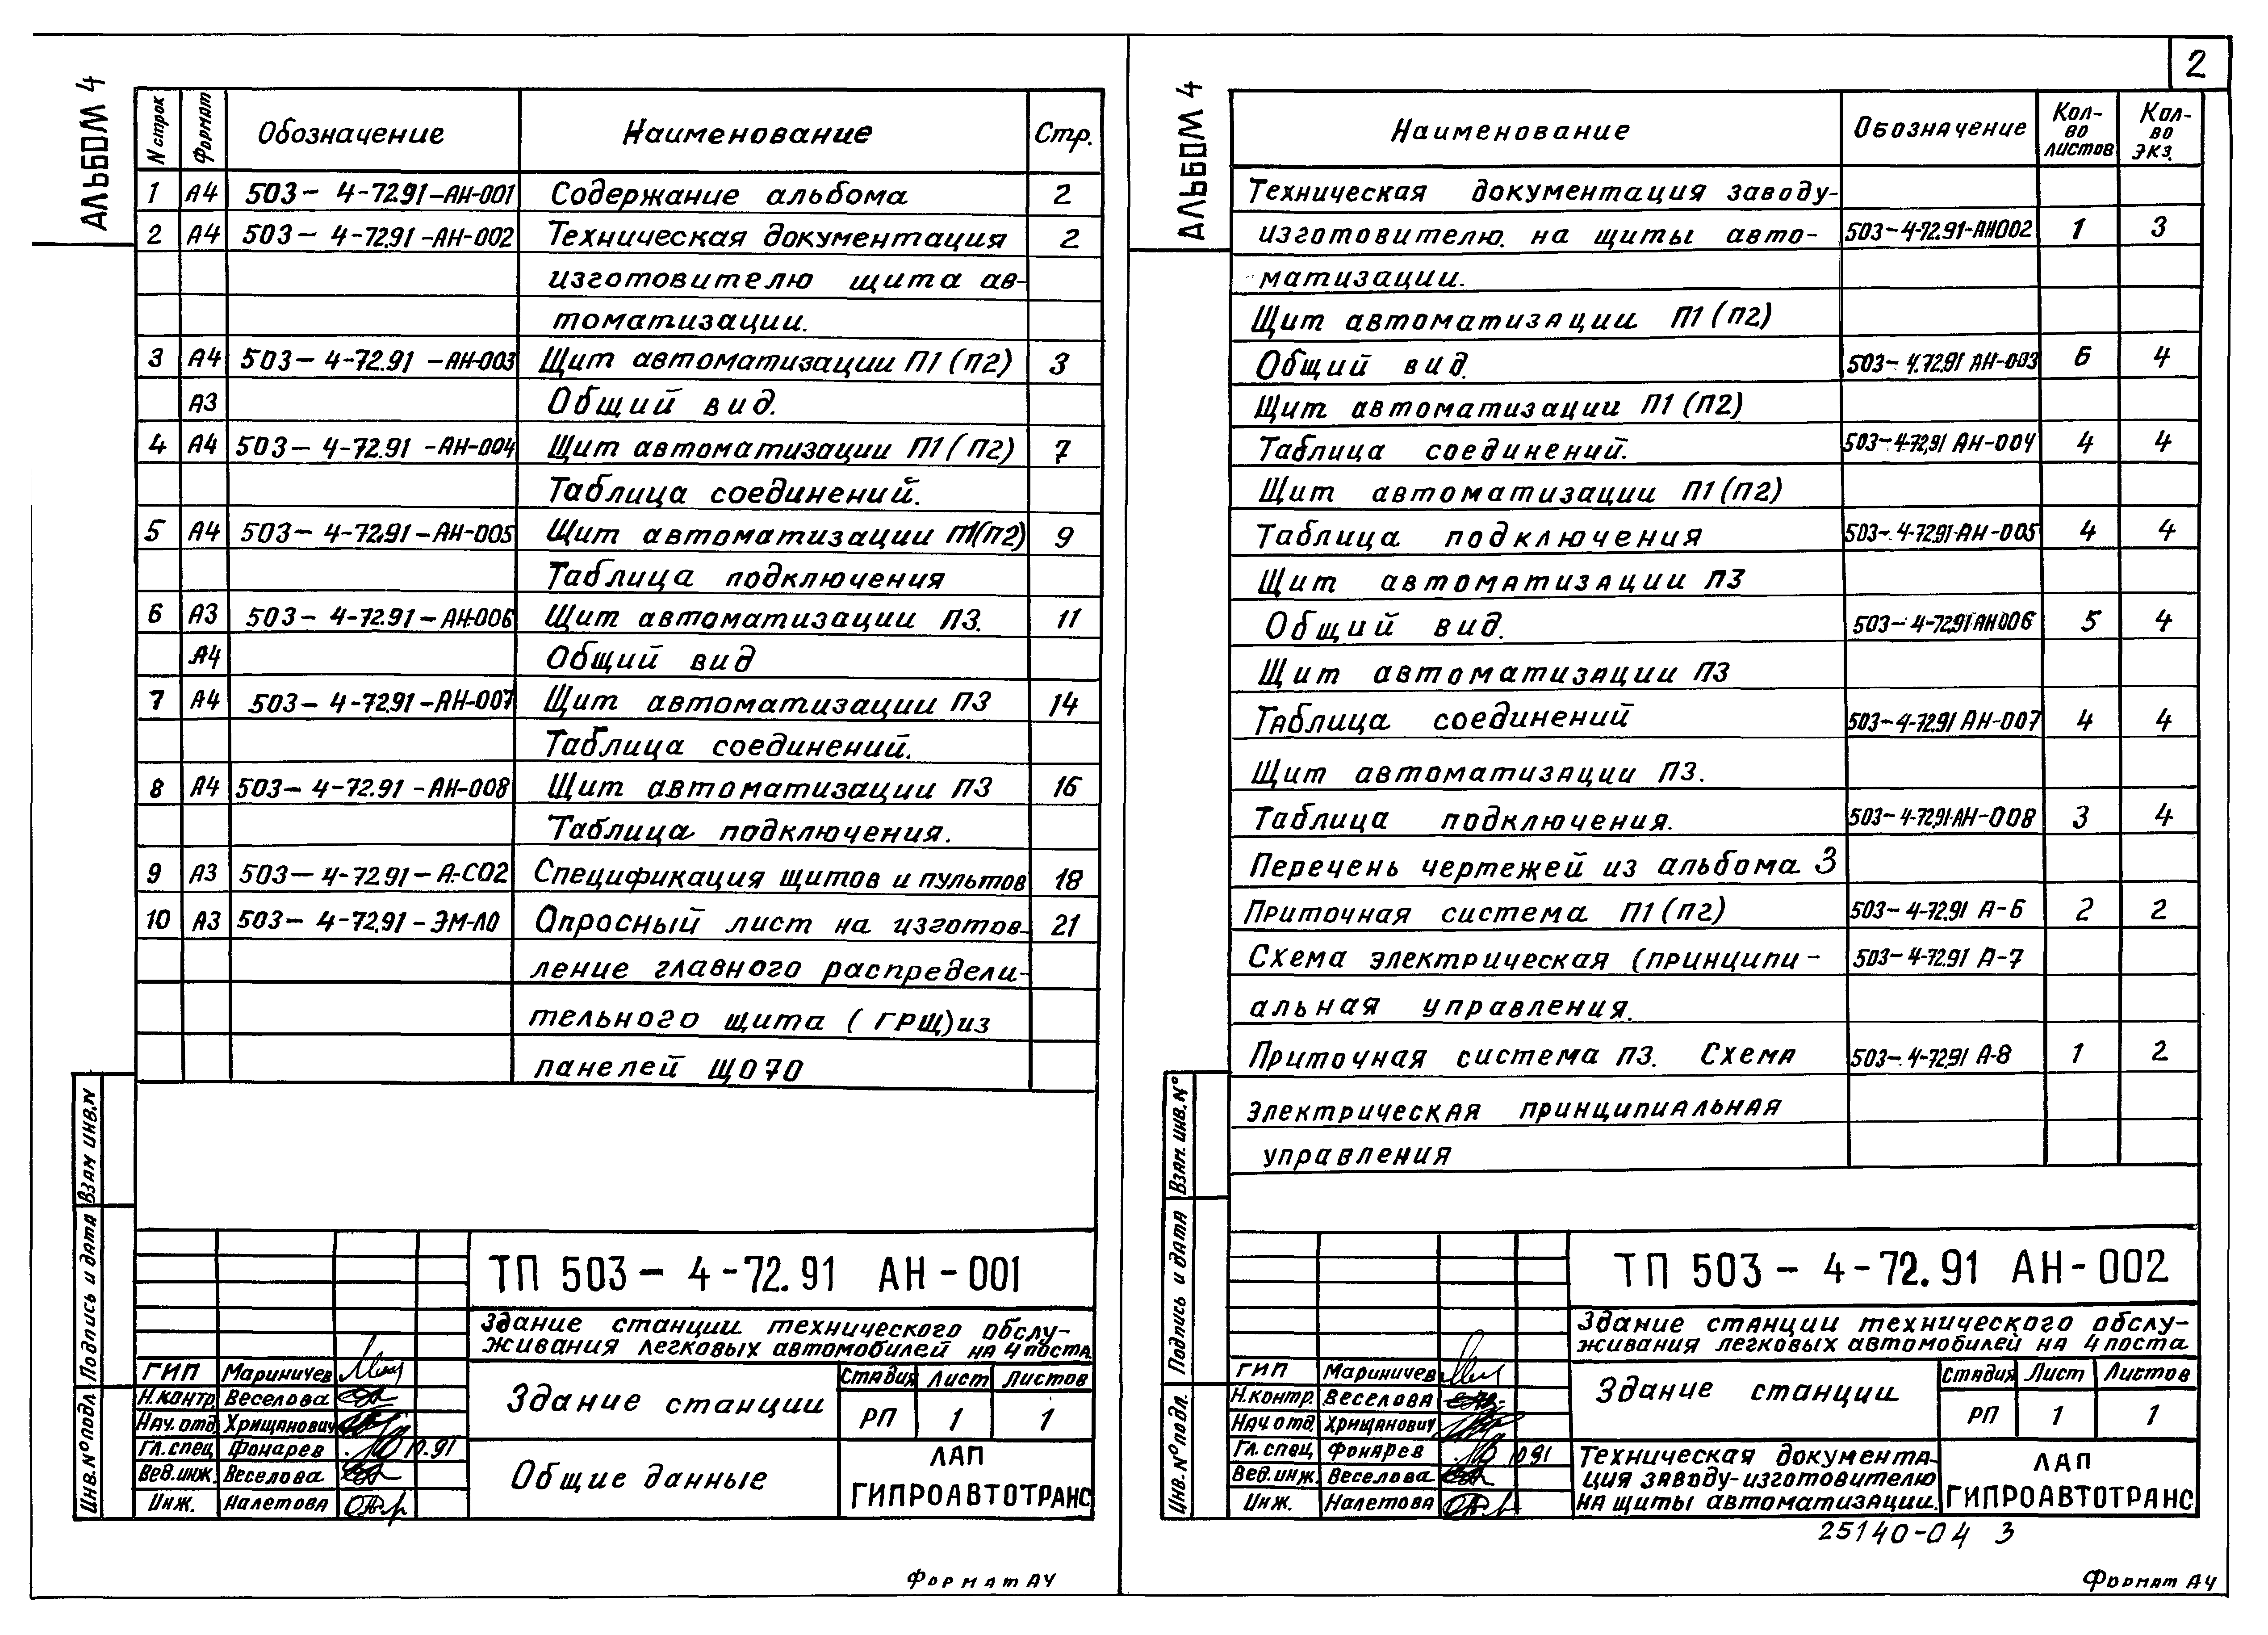 2
АЛЬБОМ 4
N строк Формат Обозначение Наименование Стр.
1 А4 503-4-72.91-АН-001 Содержание альбома 2
2 А4 503-4-72.91-АН-002 Техническая документация 2
изготовителю щита ав-
томатизации.
3 А4 503-4-72.91-АН-003 Щит автоматизации П1(П2) 3
А3 Общий вид.
4 А4 503-4-72.91-АН-004 Щит автоматизации П1(П2) 7
Таблица соединений.
5 А4 503-4-72.91-АН-005 Щит автоматизации П1(П2) 9
Таблица подключения
6 А3 503-4-72.91-АН-006 Щит автоматизации П3. 11
А4 Общий вид
7 А4 503-4-72.91-АН-007 Щит автоматизации П3 14
Таблица соединений.
8 А4 503-4-72.91-АН-008 Щит автоматизации П3 16
Таблица подключения.
9 А3 503-4-72.91-А.СО2 Спецификация щитов и пультов 18
10 А3 503-4-72.91-ЭМ-ЛО Опросный лист на изготов- 21
ление главного распредели-
тельного щита (ГРЩ) из
панелей ЩО70
Взам инв.N
Подпись и дата
Инв.N°подл
ТП 503-4-72.91 АН-001
Здание станции технического обслу-
живания легковых автомобилей на 4 поста
ГИП Мариничев
Н.контр. Веселова
Нач.отд. Хрищанович
Гл.спец Фонарев 10.91
Вед.инж. Веселова
Инж. Налетова
Здание станции
Стадия Лист Листов
РП 1 1
Общие данные
ЛАП
ГИПРОАВТОТРАНС
Формат А4
АЛЬБОМ 4
Наименование Обозначение Кол-во листов Кол-во экз.
Техническая документация заводу-
изготовителю. на щиты авто- 503-4-72.91-АН002 1 3
матизации.
Щит автоматизации П1(П2)
Общий вид. 503-4.72.91 АН-003 6 4
Щит автоматизации П1(П2)
Таблица соединений. 503-4-72.91 АН-004 4 4
Щит автоматизации П1(П2)
Таблица подключения 503-4-72.91-АН-005 4 4
Щит автоматизации П3
Общий вид. 503-4-72.91 АН006 5 4
Щит автоматизации П3
Таблица соединений 503-4-72.91 АН-007 4 4
Щит автоматизации П3.
Таблица подключения. 503-4-72.91-АН-008 3 4
Перечень чертежей из альбома 3
Приточная система П1(П2) 503-4-72.91 А-6 2 2
Схема электрическая (принципи- 503-4-72.91 А-7
альная управления.
Приточная система П3. Схема 503-4-72.91 А-8 1 2
электрическая принципиальная
управления
Взам. инв.N°
Подпись и дата
Инв.N°подл.
ТП 503-4-72.91 АН-002
Здание станции технического обслу-
живания легковых автомобилей на 4 поста
ГИП Мариничев
Н.контр. Веселова
Нач отд. Хрищанович
Гл.спец Фонарев 1091
Вед.инж. Веселова
Инж. Налетова
Здание станции
Стадия Лист Листов
РП 1 1
Техническая документа-
ция заводу-изготовителю
на щиты автоматизации.
ЛАП
ГИПРОАВТОТРАНС
25140-04 3
Формат А4